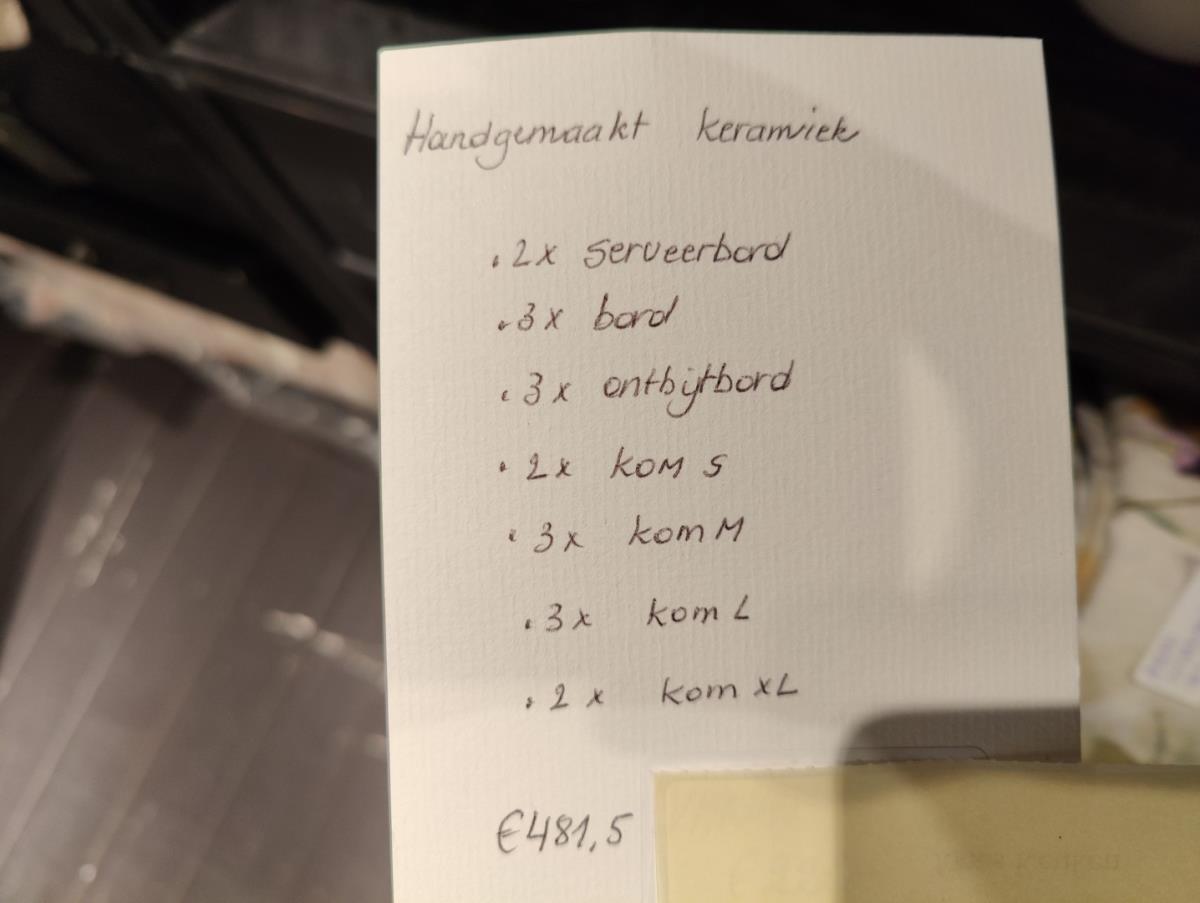 Handgemaakt keramiek
• 2x serveerbord
• 3x bord
• 3x ontbijtbord
• 2x kom S
• 3x kom M
• 3x kom L
• 2x kom XL
€481,5